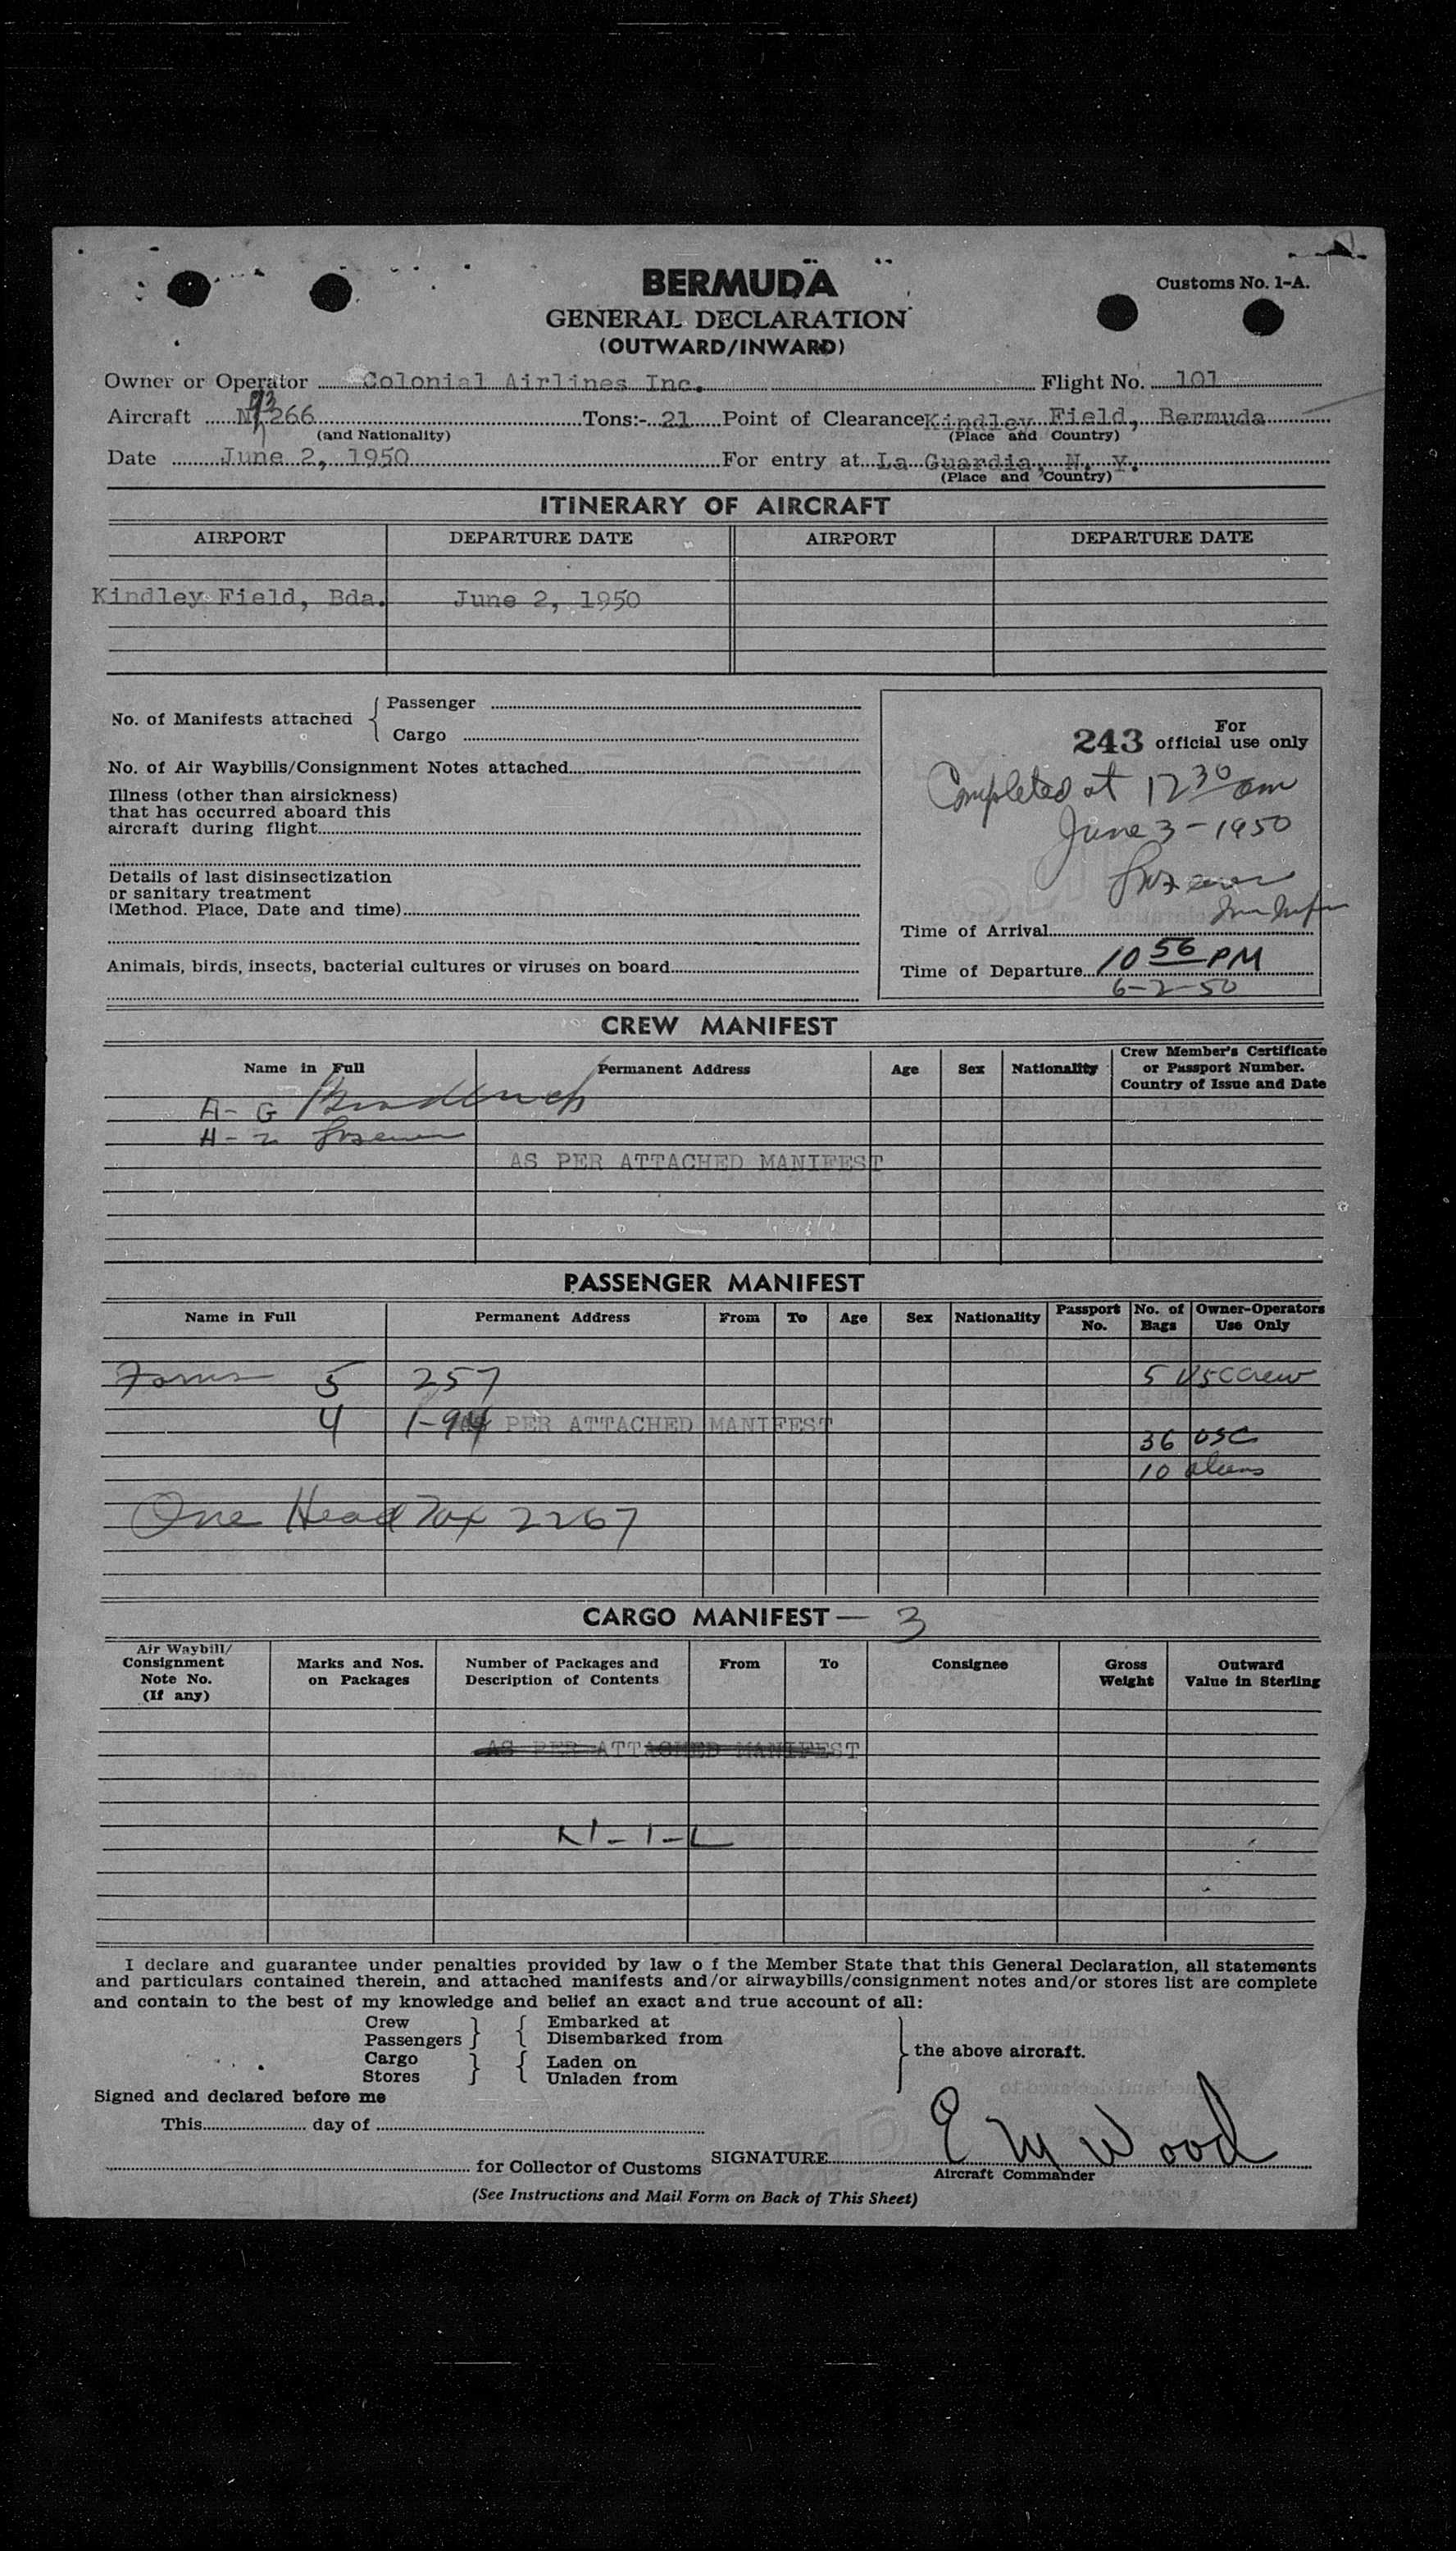 BERMUDA
Customs No. 1-A.
GENERAL DECLARATION
(OUTWARD/INWARD)
Owner or Operator Colonial Airlines Inc. Flight No. 101
Aircraft N 93 266 Tons:- 21 Point of Clearance Kindley Field, Bermuda
(and Nationality) (Place and Country)
Date June 2, 1950 For entry at La Guardia, N. Y.
(Place and Country)
ITINERARY OF AIRCRAFT
AIRPORT DEPARTURE DATE AIRPORT DEPARTURE DATE
Kindley Field, Bda. June 2, 1950
No. of Manifests attached { Passenger
Cargo
No. of Air Waybills/Consignment Notes attached
Illness (other than airsickness)
that has occurred aboard this
aircraft during flight
Details of last disinsectization
or sanitary treatment
(Method. Place, Date and time)
Animals, birds, insects, bacterial cultures or viruses on board
For
243 official use only
Completed at 12 30 am
June 3-1950
Time of Arrival
Time of Departure 10 56 PM
6-2-50
CREW MANIFEST
Name in Full Permanent Address Age Sex Nationality Crew Member's Certificate
or Passport Number.
Country of Issue and Date
A- G
H-
AS PER ATTACHED MANIFEST
PASSENGER MANIFEST
Name in Full Permanent Address From To Age Sex Nationality Passport No. No. of Bags Owner-Operators Use Only
Forms 5 257 5 USC Crew
4 I-94 AS PER ATTACHED MANIFEST
36 USC
10 aliens
One Head Tax 2267
CARGO MANIFEST — 3
Air Waybill/
Consignment
Note No.
(If any)
Marks and Nos.
on Packages
Number of Packages and
Description of Contents
From To Consignee
Gross
Weight
Outward
Value in Sterling
AS PER ATTACHED MANIFEST
N-I-L
I declare and guarantee under penalties provided by law o f the Member State that this General Declaration, all statements
and particulars contained therein, and attached manifests and/or airwaybills/consignment notes and/or stores list are complete
and contain to the best of my knowledge and belief an exact and true account of all:
Crew } { Embarked at
Passengers } { Disembarked from
Cargo } { Laden on
Stores } { Unladen from
} the above aircraft.
Signed and declared before me
This day of
for Collector of Customs
SIGNATURE E M Wood
Aircraft Commander
(See Instructions and Mail Form on Back of This Sheet)